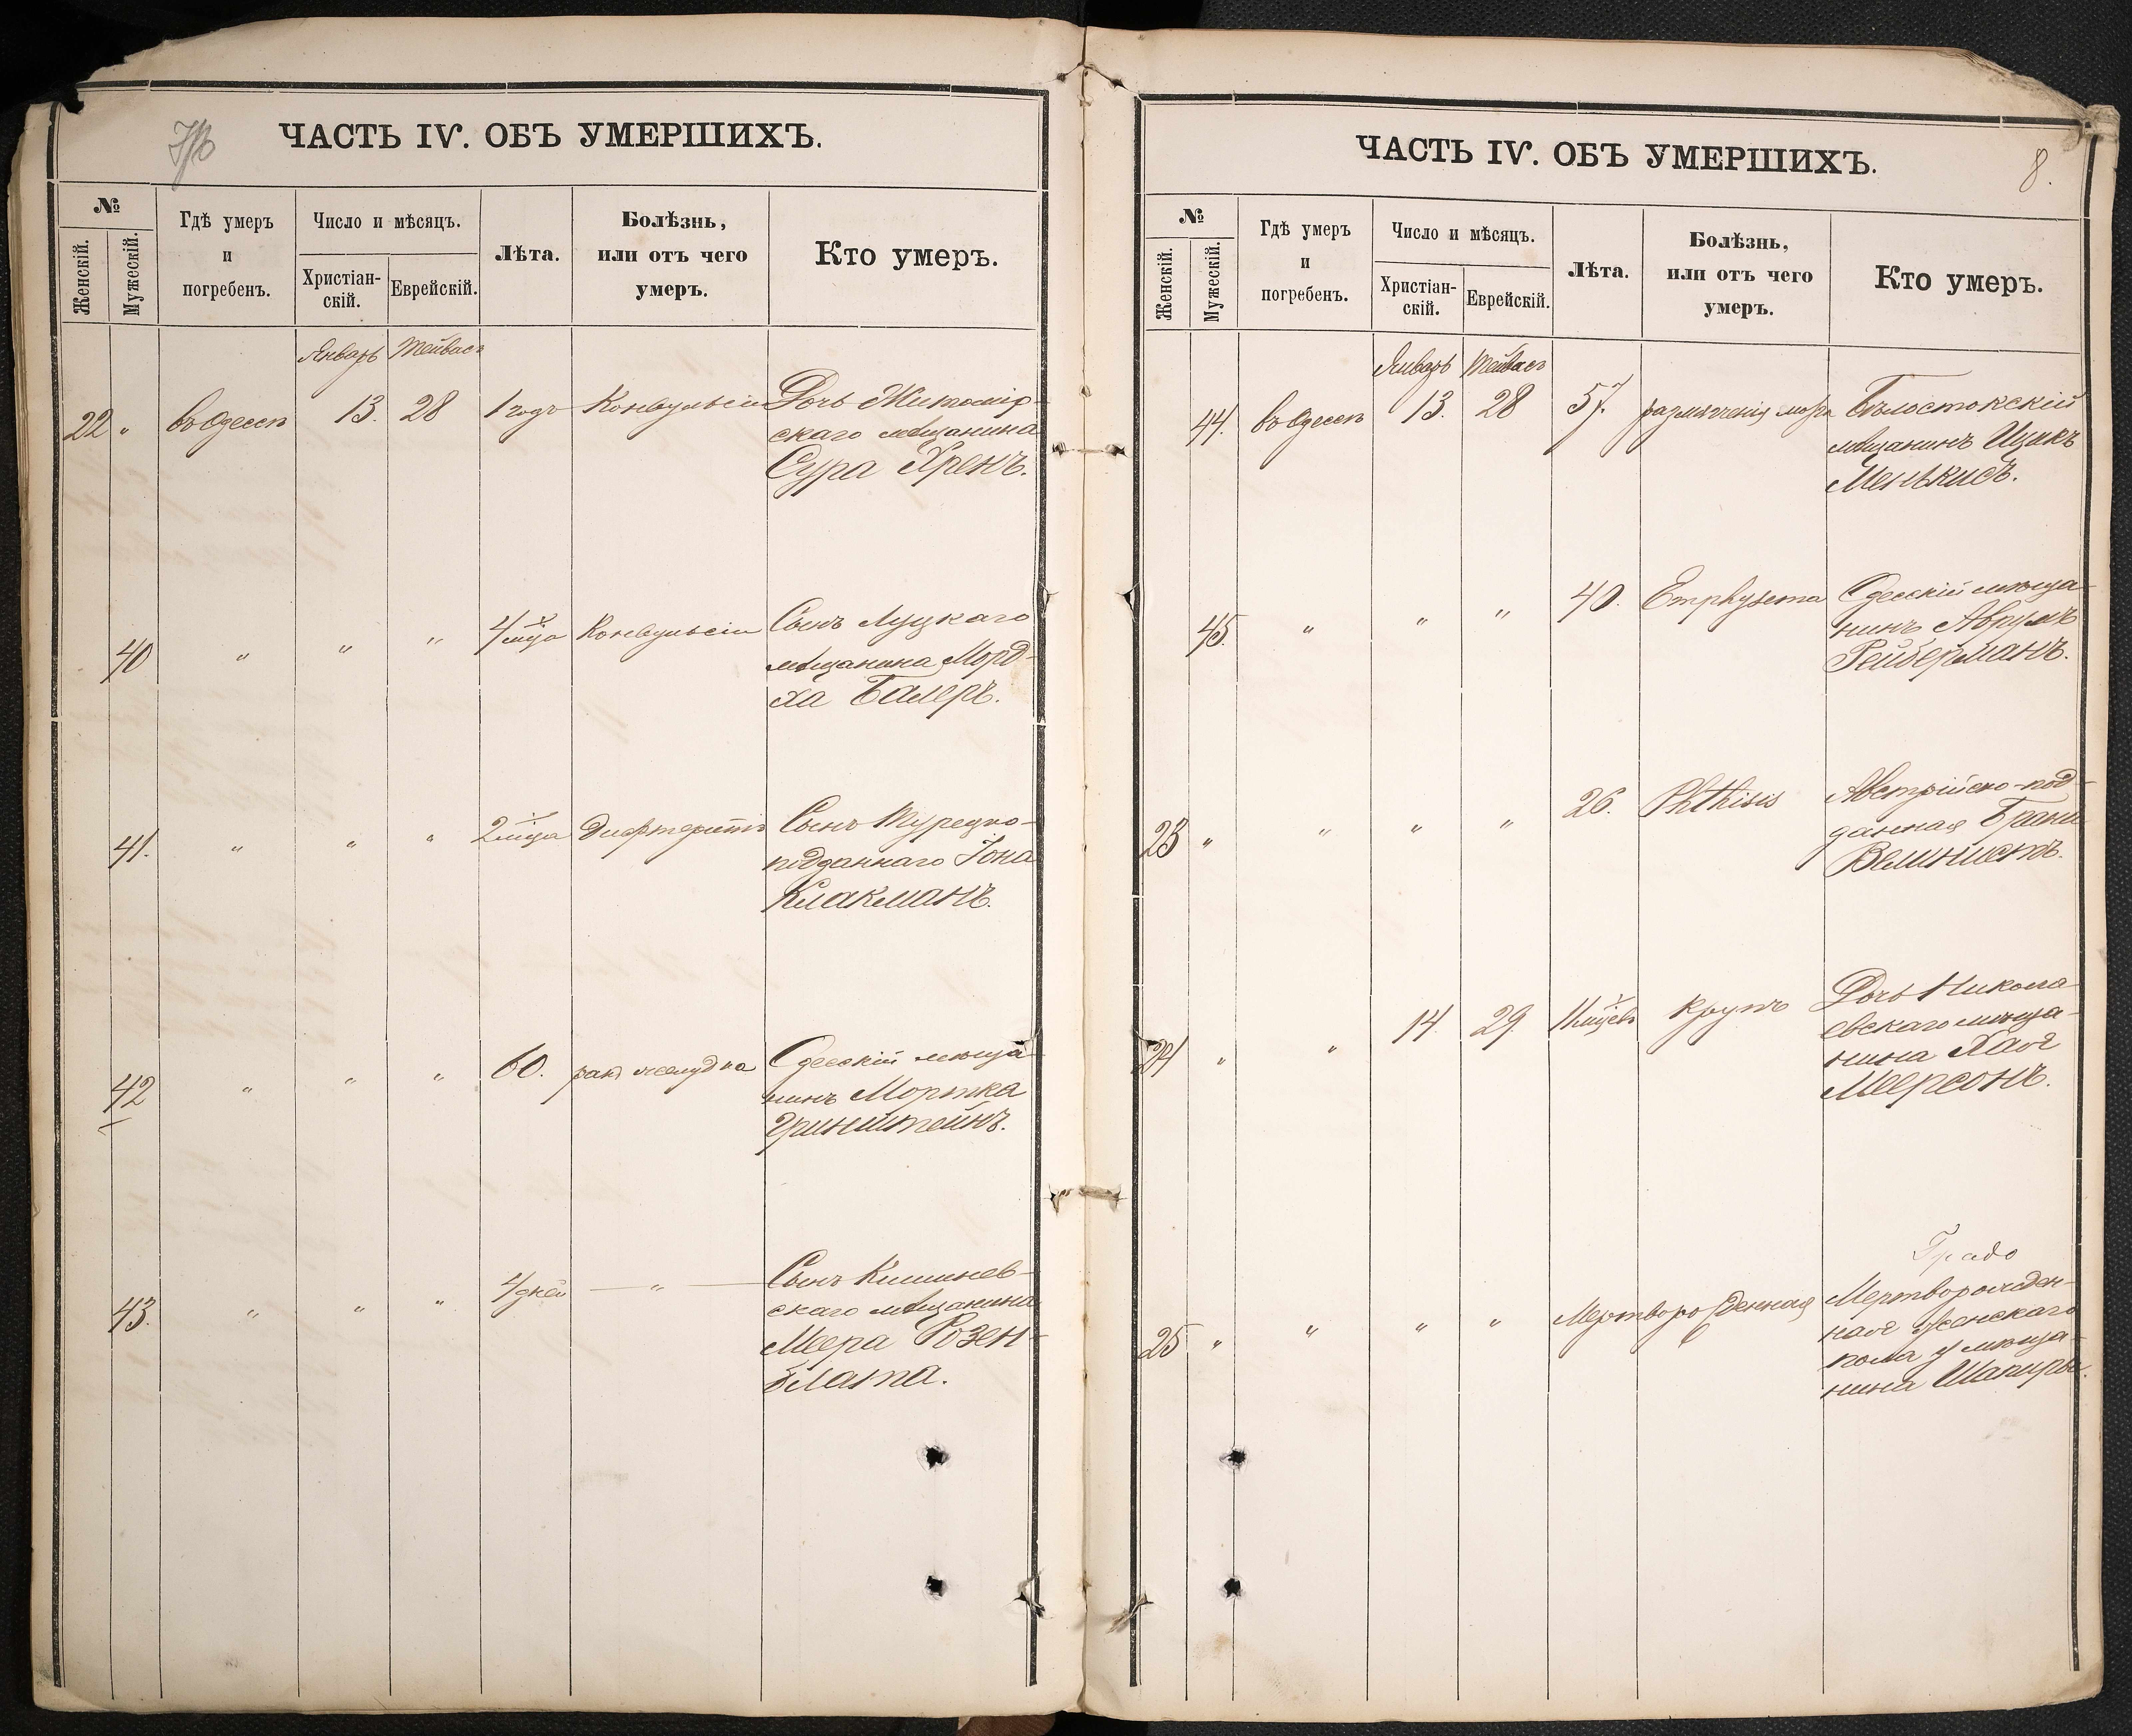 ЧАСТЬ IV. ОБЪ УМЕРШИХЪ.
№
Женскій.
Мужескій.
Гдѣ умеръ
и
погребенъ.
Число и мѣсяцъ.
Христіан-
скій.
Еврейскій.
Лѣта.
Болѣзнь,
или отъ чего
умеръ.
Кто умеръ.
Январь Тейвасъ
22 " въ Одессѣ 13. 28 1 годъ Конвульсіи Дочь Житомір-
скаго мѣщанина
Сура Хренъ.
40 " " " 4 мца Конвульсіи Сынъ Луцкаго
мѣщанина Морд-
ха Балеръ.
41. " " " 2 мца Дифтеритъ Сынъ Турецко-
подданнаго Іона
Клакманъ.
42 " " " 60. ракъ желудка Одесскій мѣща-
нинъ Мортка
Гринштейнъ.
43. " " " 4 дней — " — Сынъ Кишинев-
скаго мѣщанина
Меера Розен-
блата.
ЧАСТЬ IV. ОБЪ УМЕРШИХЪ.
8.
№
Женскій.
Мужескій.
Гдѣ умеръ
и
погребенъ.
Число и мѣсяцъ.
Христіан-
скій.
Еврейскій.
Лѣта.
Болѣзнь,
или отъ чего
умеръ.
Кто умеръ.
Январь Тейвасъ
44. въ Одессѣ 13. 28 57. размягченія мозга Бѣлостокскій
мѣщанинъ Ицикъ
Менькисъ.
45. " " " 40. Emphysema Одесскій мѣща-
нинъ Аврумъ
Рейберманъ.
23 " " " " 26. Phthisis Австрійско-под-
данная Брана
24 " " 14. 29 11 мцевъ Крупъ Дочь Никола-
евскаго мѣща-
нина Хая
Меерсонъ.
25 " " " " Мертворожденная Мертворожден-
ная женскаго
пола у мѣща-
нина Шапиры.